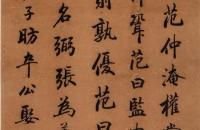 范仲淹權
聟范曰監
則孰優范曰
名弼張為善
子昉卒公娶